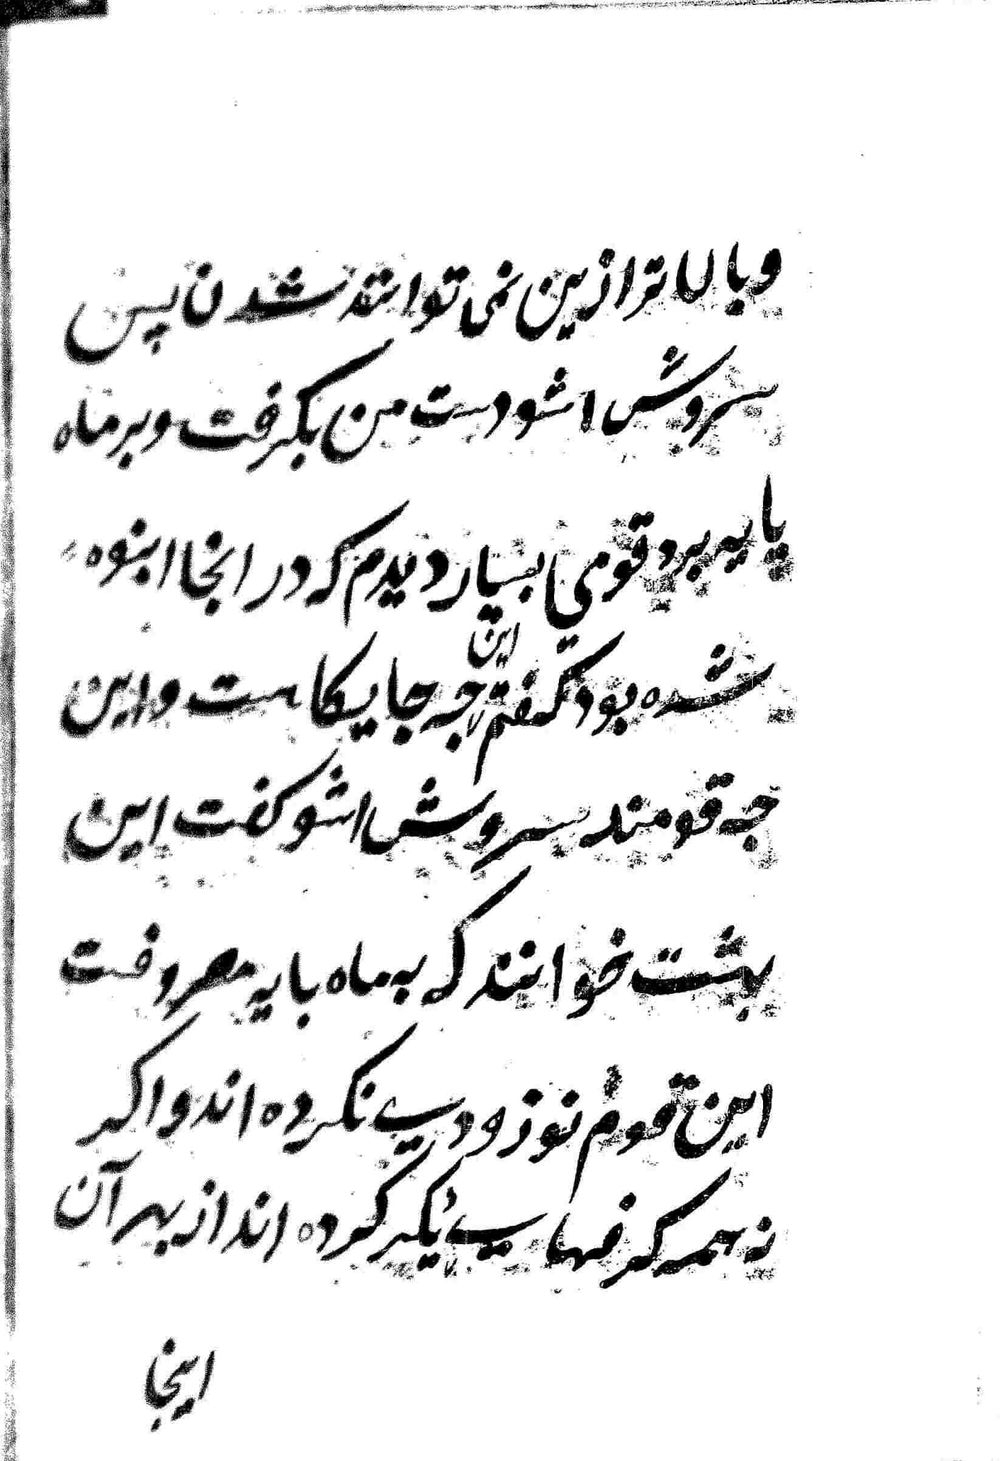 وبالاتر ازین نمی توانند شدن پس
سروش اشو دست من بگرفت وبر ماه
پایه برد قومی بسیار دیدم که در انجا انبوه
شده بود گفتم این چه جایگاهست واین
چه قومند سروش اشو گفت این
بهشت خوانند که به ماه پایه معروفست
این قوم نوزودی نکرده اند واگر
نه همه کرفهای دیگر کرده اند از بهر آن
اینجا